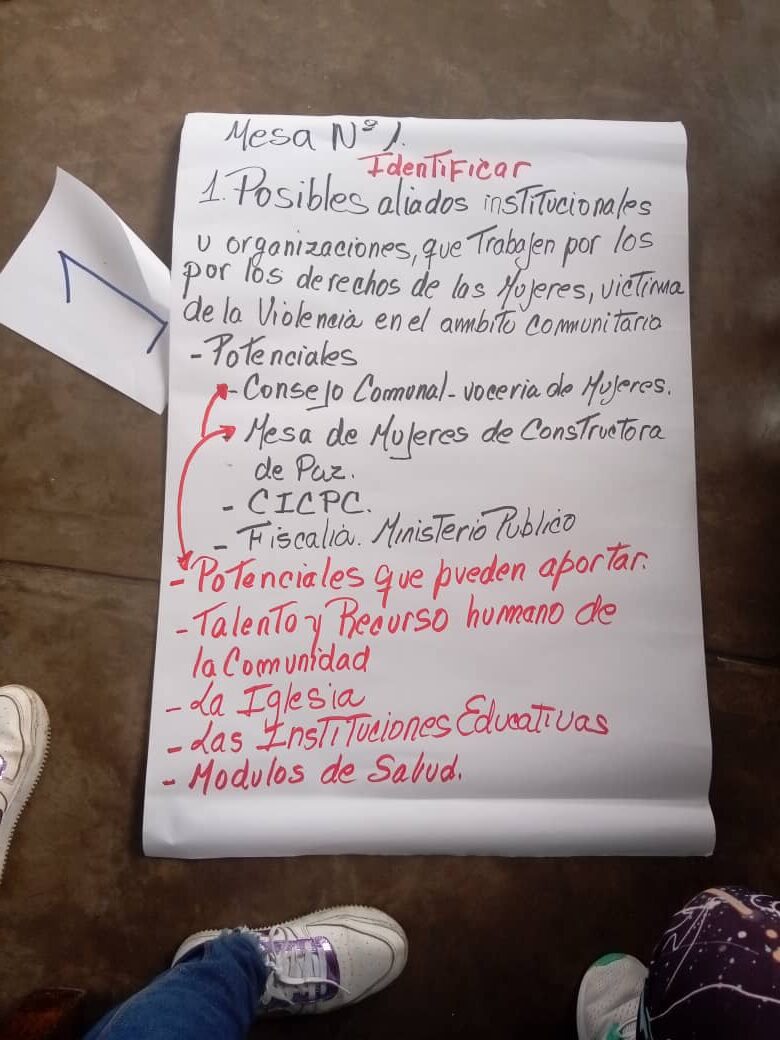 Mesa Nº 1.
Identificar
1. Posibles aliados institucionales
u organizaciones, que Trabajen por los
por los derechos de las Mujeres, victima
de la Violencia en el ambito Communitario
- Potenciales
- Consejo Comunal - voceria de Mujeres.
- Mesa de Mujeres de Constructora
de Paz.
- CICPC.
- Fiscalia. Ministerio Publico
- Potenciales que pueden aportar:
- Talento y Recurso humano de
la Comunidad
- La Iglesia
- Las Instituciones Educativas
- Modulos de Salud.
1